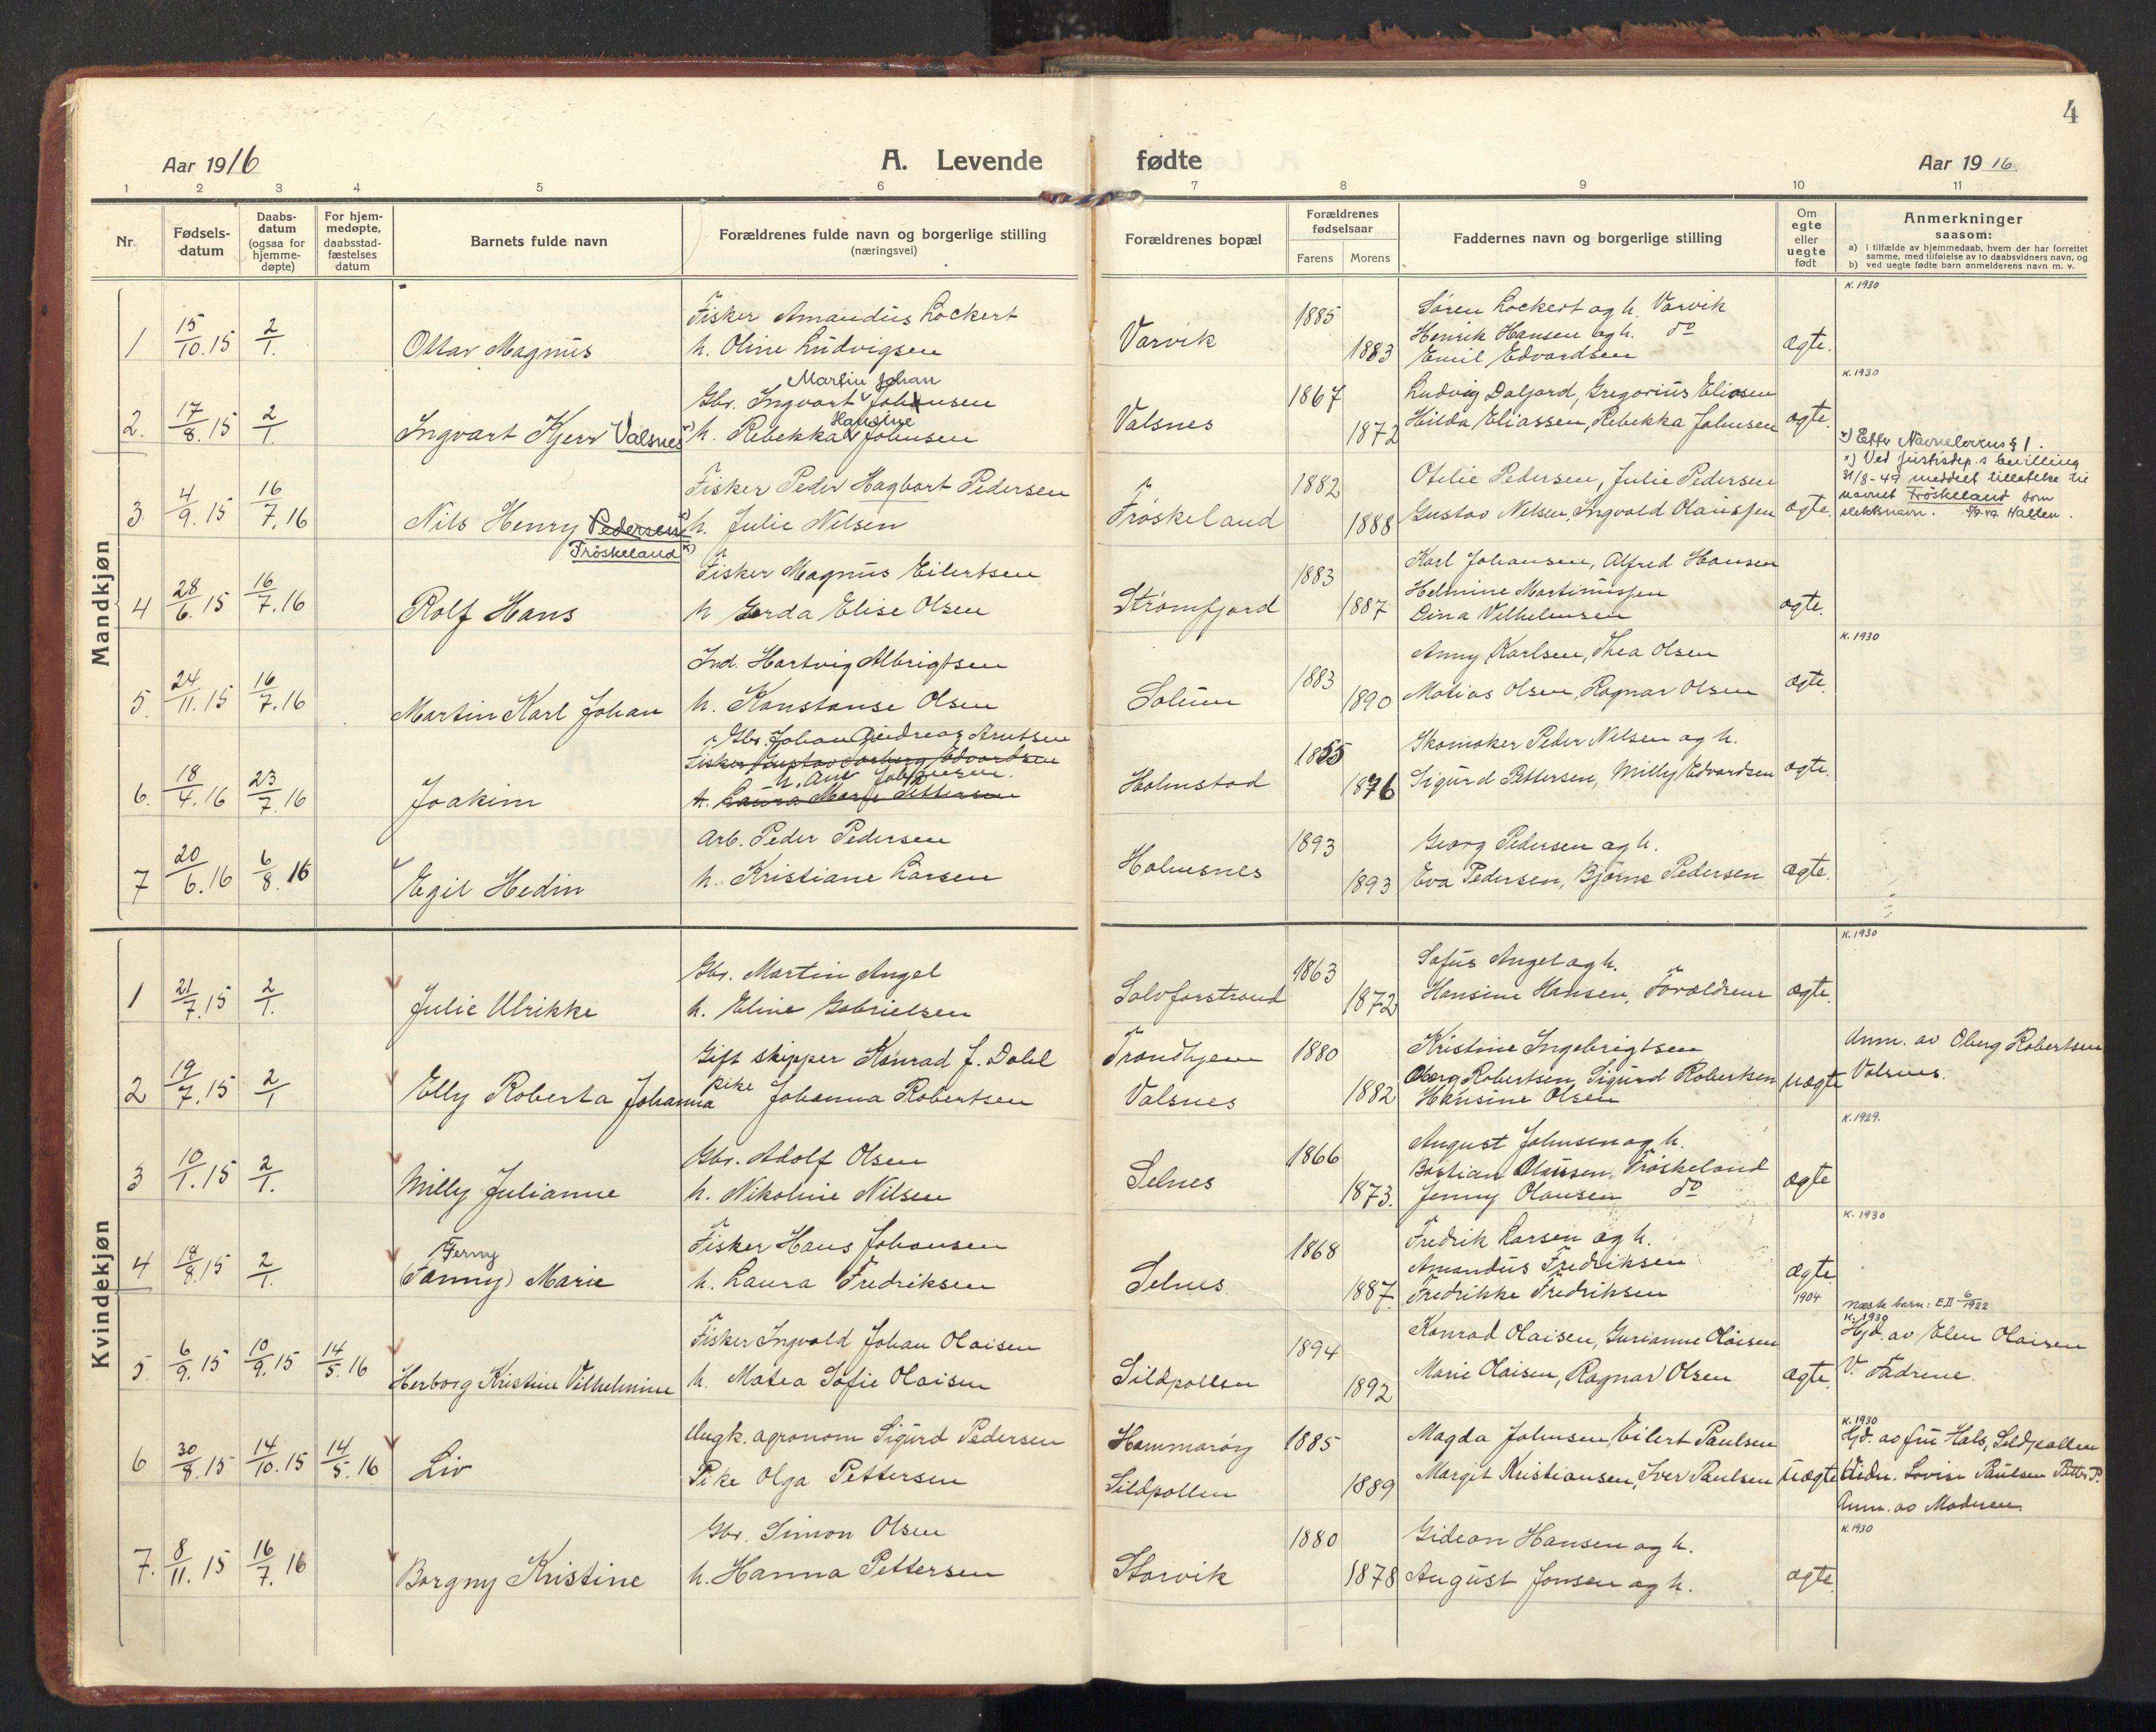 4
Aar 1916 A. Levende fødte Aar 1916
1 2 3 4 5 6 7 8 9 10 11
Nr. Fødsels-datum Daabs-datum (ogsaa for hjemme-døpte) For hjem-medøpte, daabsstad-fæstelses datum Barnets fulde navn Forældrenes fulde navn og borgerlige stilling (næringsvei) Forældrenes bopæl Forældrenes fødselsaar Farens Morens Faddernes navn og borgerlige stilling Om egte eller uegte født Anmerkninger saasom:
a) i tilfælde av hjemmedaab, hvem der har forrettet samme, med tilføielse av to daabsvidners navn, og
b) ved uegte fødte barn anmelderens navn m. v.
Mandkjøn
K. 1930
Fisker Amandus Lockert 1885 Søren Lockert og h. Varvik
1 15/10.15 2/1. Ottar Magnus h. Oline Ludvigsen Varvik 1883 Henrik Hansen og h. do ægte.
Emil Edvardsen
K. 1930
Martin Johan
Gbr. Ingvart Johnsen 1867 Ludvig Daljord, Gregorius Eliasen
Hansine
2. 17/8.15 2/1. Ingvart Kjerr Valsnes x) h. Rebekka Johnsen Valsnes 1872 Hilda Eliassen, Rebekka Johnsen ægte.
x) Efter Navnelovens § 1.
Fisker Peder Hagbart Pedersen 1882 Otelie Pedersen, Julie Pedersen x) Ved Justisdep.s bevilling
3 4/9.15 16/7.16 Nils Henry Pedersen h. Julie Nilsen Frøskeland 1888 Gustav Nelsen, Ingvald Olaussen ægte. 31/8-49 meddelt tillatelse til
navnet Frøskeland som
Frøskeland x) slektsnavn. Walten.
Fisker Magnus Eilertsen 1883 Karl Johansen, Alfred Hansen
4 28/6.15 16/7.16 Rolf Hans h Gerda Elise Olsen Strømfjord 1887 Helmine Martinussen ægte.
Lina Vilhelmsen
K. 1930
Ind. Hartvig Albrigtsen 1883 Anny Karlsen, Thea Olsen
5. 24/11.15 16/7.16 Martin Karl Johan h. Konstanse Olsen Soleim 1890 Matias Olsen, Ragnar Olsen ægte.
Gbr. Johan Andreas Arntsen
Fisker Gustav Edvardsen 1855 Skomaker Peder Nilsen og h.
6. 18/4.16 23/7.16 Joakim h. Laura Marie Pettersen Holmstad 1876 Sigurd Pettersen, Milly Edvardsen ægte.
Arb. Peder Pedersen 1893 Georg Pedersen og h.
7 20/6.16 6/8.16 Egil Hedin h. Kristiane Larsen Holmsnes 1893 Eva Pedersen, Bjarne Pedersen ægte.
Kvindekjøn
K. 1930
Gbr. Martin Angel 1863 Sofus Angel og h.
1 21/7.15 2/1. Julie Ulrikke h. Eline Gabrielsen Salvforstrand 1872 Hansine Hansen, Forældrene ægte.
Gift skipper Konrad J. Dahl Trondhjem 1880 Kristine Ingebrigtsen Anm. av Oberg Robertsen
2 19/7.15 2/1 Elly Roberta Johanna Pike Johanna Robertsen Valsnes 1882 Oberg Robertsen, Sigurd Robertsen uægte Valsnes.
Hansine Olsen
K. 1929.
Gbr. Adolf Olsen 1866 August Johnsen og h.
3 10/1.15 2/1. Milly Julianne h. Nikoline Nilsen Selnes 1873. Bastian Olausen, Frøskeland ægte
Jenny Olausen do
K. 1930
Ferny Fisker Hans Johansen 1868 Fredrik Larsen og h.
4 18/8.15 2/1. (Fanny) Marie h. Laura Fredriksen Selnes. 1887. Amandus Fredriksen ægte
Fredrikke Fredriksen 1904 Næste barn: E II 6/1922
K. 1930
Fisker Ingvald Johan Olaisen 1894 Konrad Olaisen, Gurianne Olaisen Hjd. av Elen Olaisen
5. 6/9.15 10/9.15 14/5.16 Herborg Kristine Vilhelmine h. Matea Sofie Olaisen Sildpollen 1892 Marie Olaisen, Ragnar Olsen ægte. V. Fadrene.
K. 1930
Ungk. agronom Sigurd Pedersen Hammarøy 1885 Magda Johnsen, Eilert Paulsen Hjd. av fru Hals, Sildpollen
6 30/8.15 14/10.15 14/5.16 Liv Pike Olga Pettersen Sildpollen 1889 Margit Kristiansen, Iver Paulsen uægte Vidn. Lovise Paulsen Petter P.
Anm. av Moderen.
K. 1930
Gbr. Simon Olsen 1880 Gideon Hansen og h.
7. 8/11.15 16/7.16 Borgny Kristine h. Hanna Pettersen Storvik 1878 August Jonsen og h. ægte.